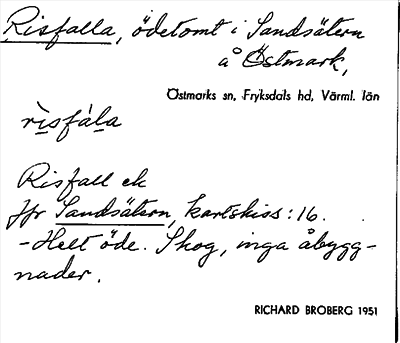 Risfalla, ödetomt i Sandsätern
å Östmark,
Östmarks sn, Fryksdals hd, Värml. län
rìsfá̀la
Risfall ek
Jfr Sandsätern, kartskiss: 16.
- Helt öde. Skog, inga åbygg-
nader.
RICHARD BROBERG 1951